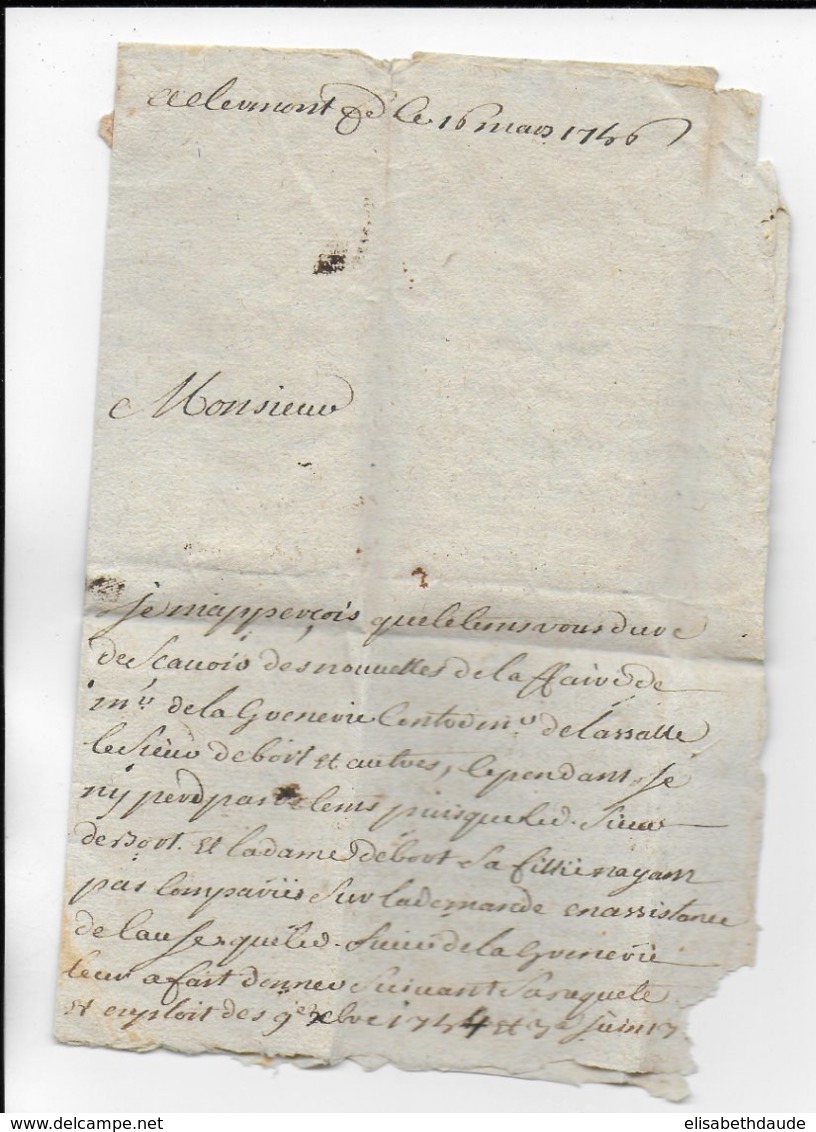 a clermont fd le 16 mars 1746
Monsieur
je mapperçois que le tems vous dure
de scavoir des nouvelles de laffaire de
mr. de la Gvenerie Contre mr. de lassalle
le sieur de bort et autres, Cependant je
ny perd pas de tems puisque led. Sieur
de Bort. et la dame de bort sa fille nayant
pas Comparües Sur la demande en assistance
de Cause que led. Sieur de la Gvenerie
leur a fait donner Suivant sa requete
et exploit des 9e xbre 1744 et 3e juin 17
elisabethdaude